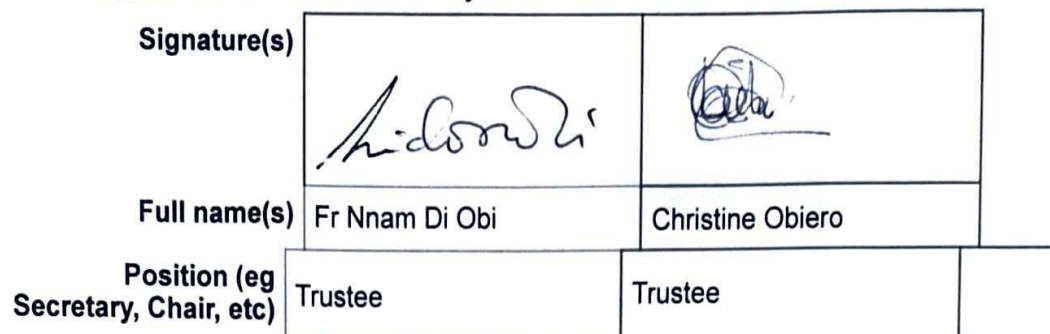 Signature(s)
Full name(s) Fr Nnam Di Obi Christine Obiero
Position (eg
Secretary, Chair, etc) Trustee Trustee